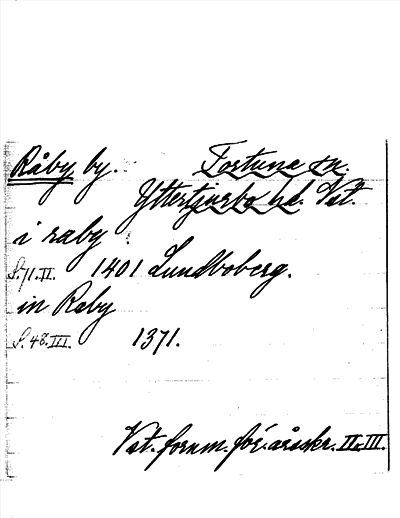 Råby by. Fortuna sn.
Yttertjurbo hd. Vst.
i raby
S. 71. II. 1401 Lundboberg.
in Raby
S. 48. III. 1371.
Vst. fornm. för:s årsskr. II o. III.